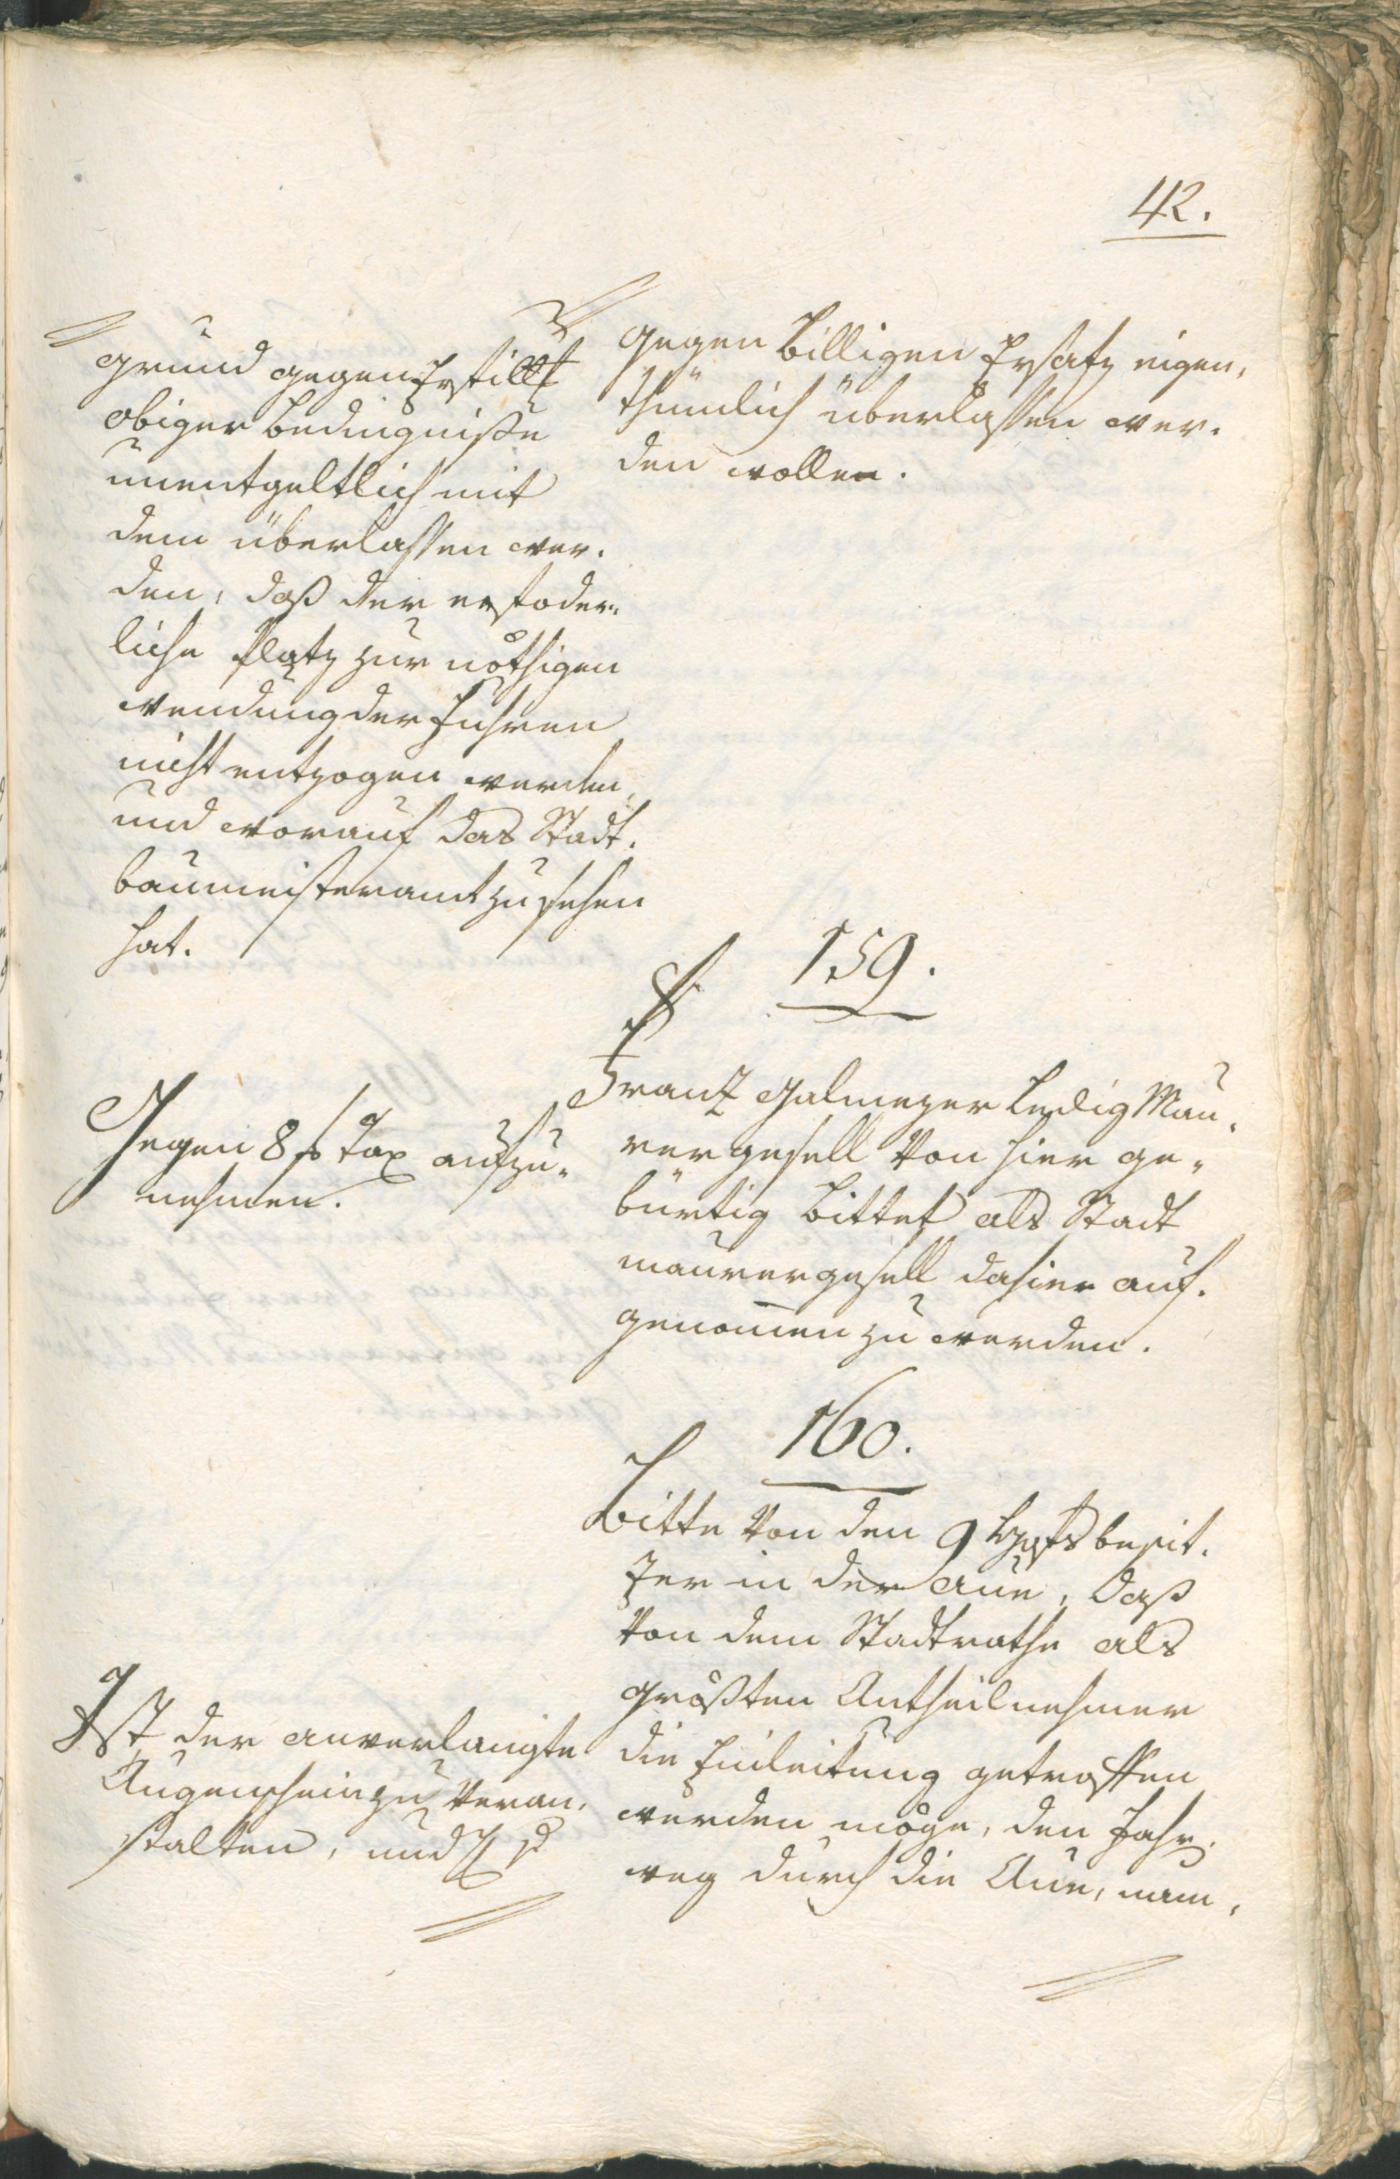 42.
grund gegen Erfüllg
obiger Bedingniße
unentgeltlich mit
dem überlassen wer-
den, daß der erfoder-
liche Platz zur nöthigen
Wendung der Fuhren
nicht entzogen werden,
und worauf das Stadt-
baumeisteramt zu sehen
hat.
gegen billigen Ersatz eigen-
thümlich überlassen wer-
den wollen.
159.
Franz Galmeyer ledig Mau-
rergesell von hier ge-
bürtig bittet als Stadt
maurergesell dahier auf-
genom̄en zu werden.
Gegen 8 f Tax aufzu-
nehmen.
160.
Bitte von den 9 besit-
zer in der Aue, daß
von dem Stadtrathe als
größten Antheilnehmer
die Einleitung getroffen
werden möge, den Fahr-
weg durch die Aue, nam-
Ist der anverlangte
Augenschein zu veran-
stalten, und